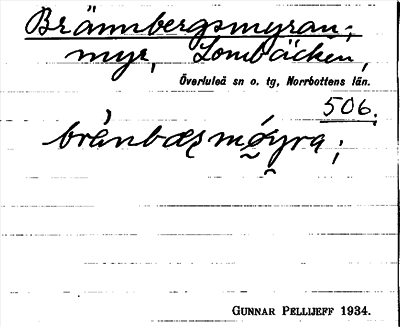 Brännbergsmyran;
myr, Lombäcken,
Överluleå sn o. tg, Norrbottens län.
506.
brànbæsmǿyra;
GUNNAR PELLIJEFF 1934.